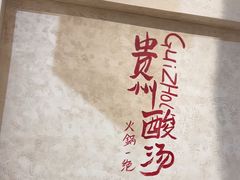 GUiZHOU
贵州酸汤
火锅一绝